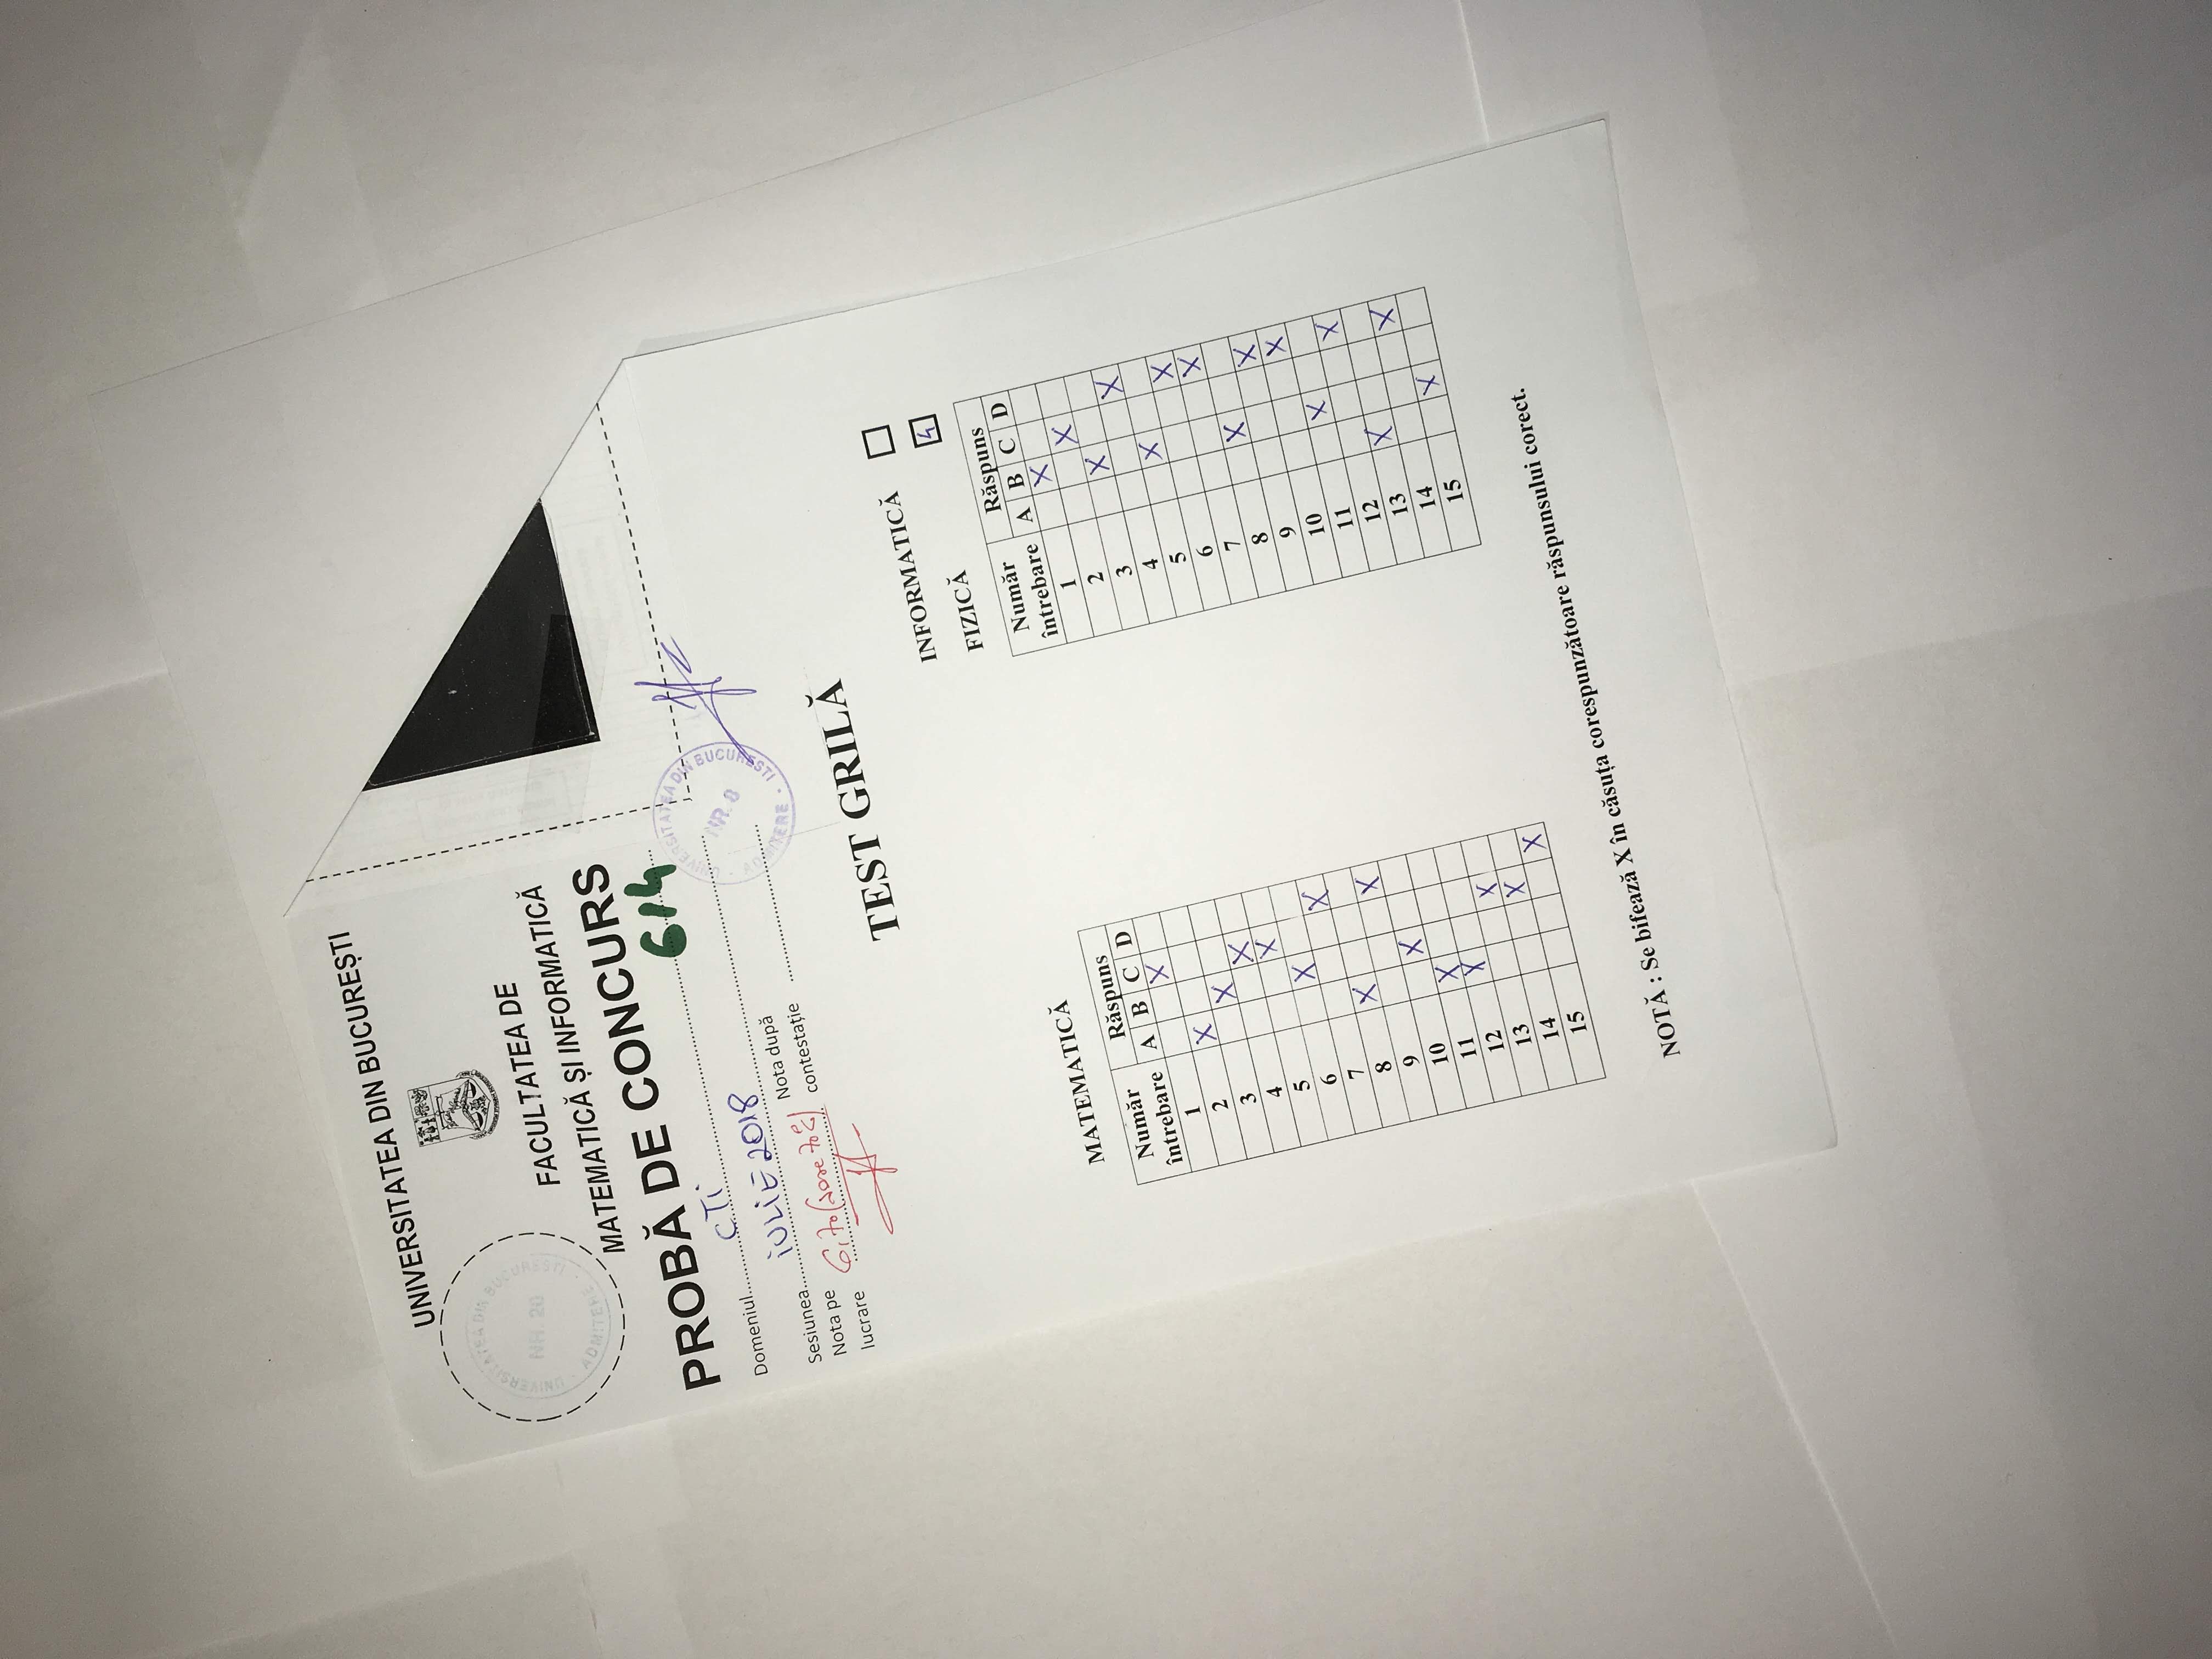 UNIVERSITATEA DIN BUCUREȘTI
UNIVERSITATEA DIN BUCUREȘTI
NR. 20
ADMITERE
FACULTATEA DE
MATEMATICĂ ȘI INFORMATICĂ
PROBĂ DE CONCURS
614
Domeniul CTi
Sesiunea iULiE 2018
Nota pe lucrare 6,70
Nota după contestație
UNIVERSITATEA DIN BUCUREȘTI
NR. 8
ADMITERE
TEST GRILĂ
INFORMATICĂ
FIZICĂ 4
Număr întrebare Răspuns
A B C D
1 X
2 X
3 X
4 X
5 X
6 X
7 X
8 X
9 X
10 X
11 X
12 X
13 X
14 X
15 X
MATEMATICĂ
Număr întrebare Răspuns
A B C D
1 X
2 X
3 X
4 X
5 X
6 X
7 X
8 X
9 X
10 X
11 X
12 X
13 X
14 X
15 X
NOTĂ : Se bifează X în căsuța corespunzătoare răspunsului corect.